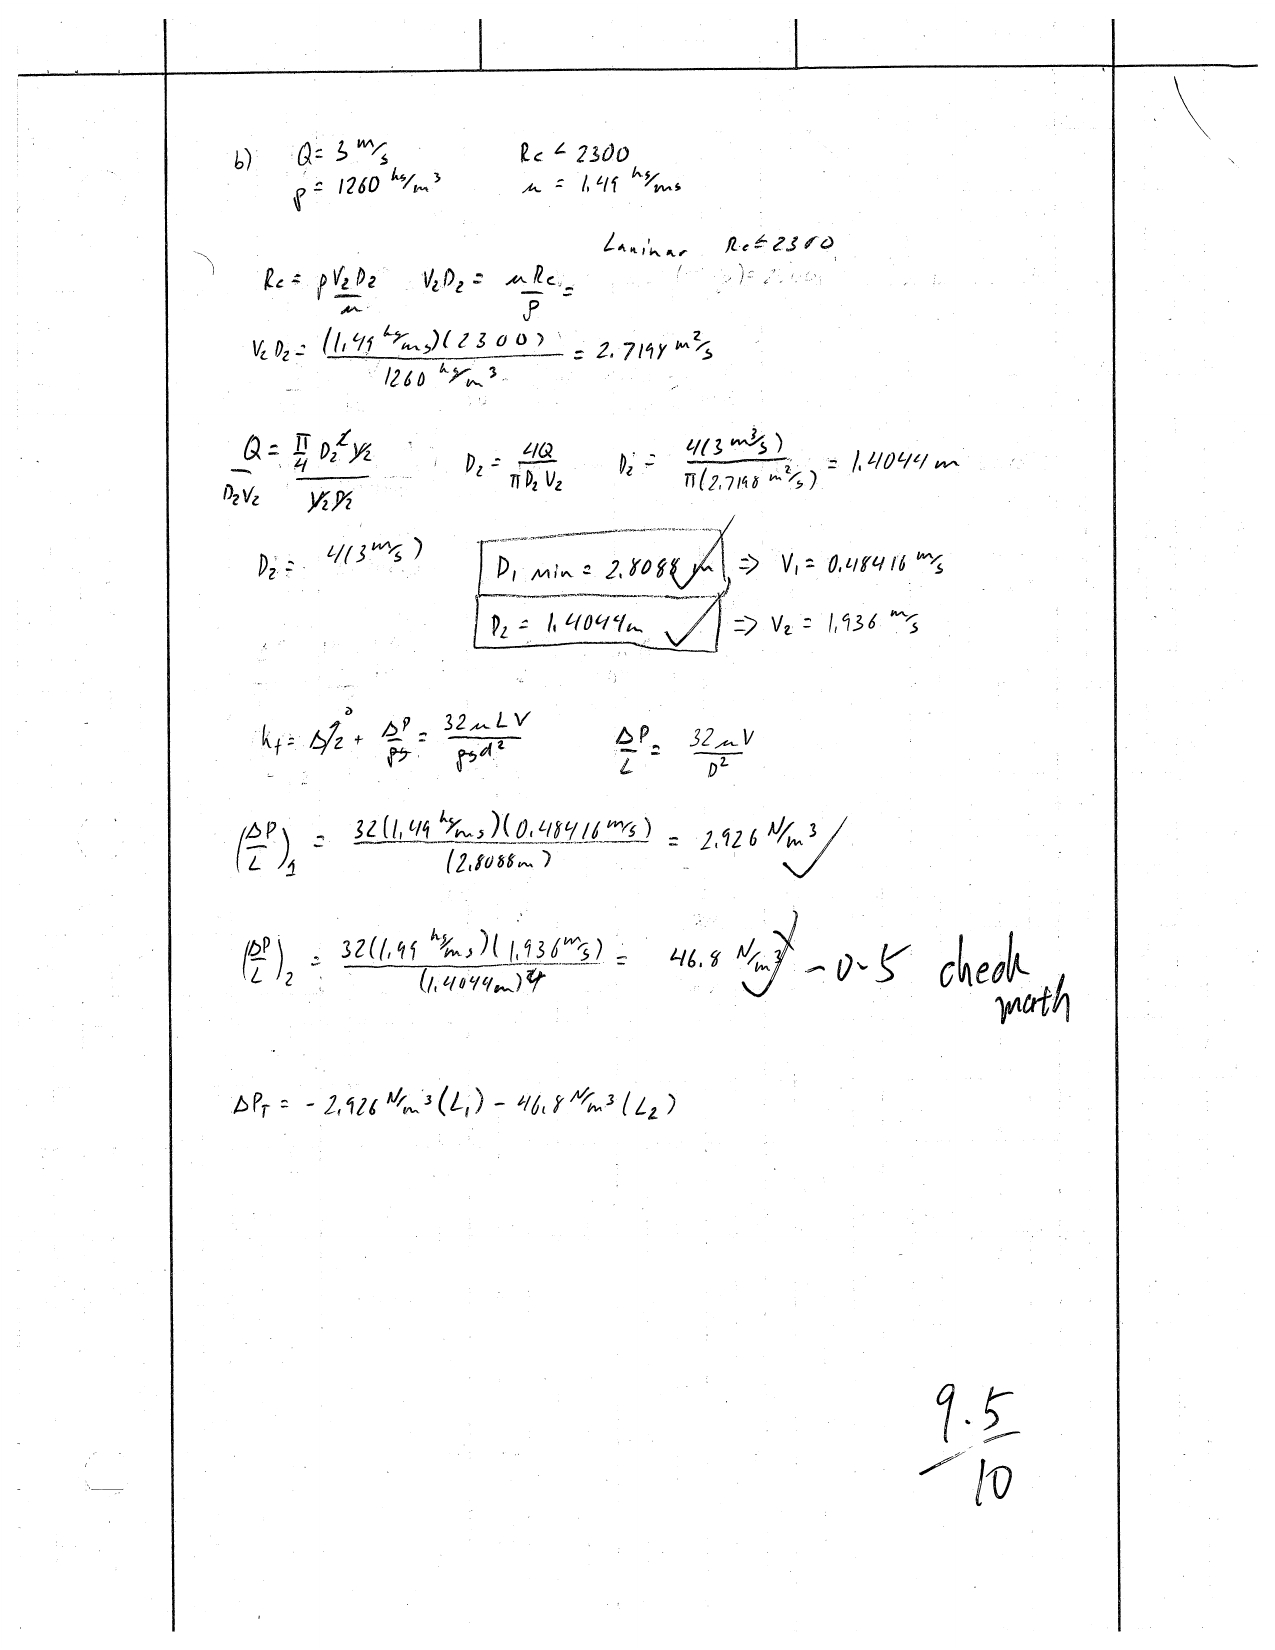 b) Q = 3 m/s Re < 2300
ρ = 1260 kg/m³ μ = 1.49 kg/ms
Laminar Re ≤ 2300
Re = ρV₂D₂/μ V₂D₂ = μRe/ρ =
V₂D₂ = (1.49 kg/ms)(2300)/1260 kg/m³ = 2.7198 m²/s
Q/D₂V₂ = π/4 D₂² V₂/V₂D₂ D₂ = 4Q/πD₂V₂ D₂ = 4(3 m³/s)/π(2.7198 m²/s) = 1.4044 m
D₂ = 4(3 m/s)
D₁ min = 2.8088 m ✓ ⇒ V₁ = 0.48416 m/s
D₂ = 1.4044 m ✓ ⇒ V₂ = 1.936 m/s
hf = Δz⁰ + ΔP/ρg = 32μLV/ρgd² ΔP/L = 32μV/D²
(ΔP/L)₁ = 32(1.49 kg/ms)(0.48416 m/s)/(2.8088m) = 2.926 N/m³ ✓
(ΔP/L)₂ = 32(1.49 kg/ms)(1.936 m/s)/(1.4044m)² = 46.8 N/m³ -0.5 check
math
ΔP_T = - 2.926 N/m³ (L₁) - 46.8 N/m³ (L₂)
9.5
10